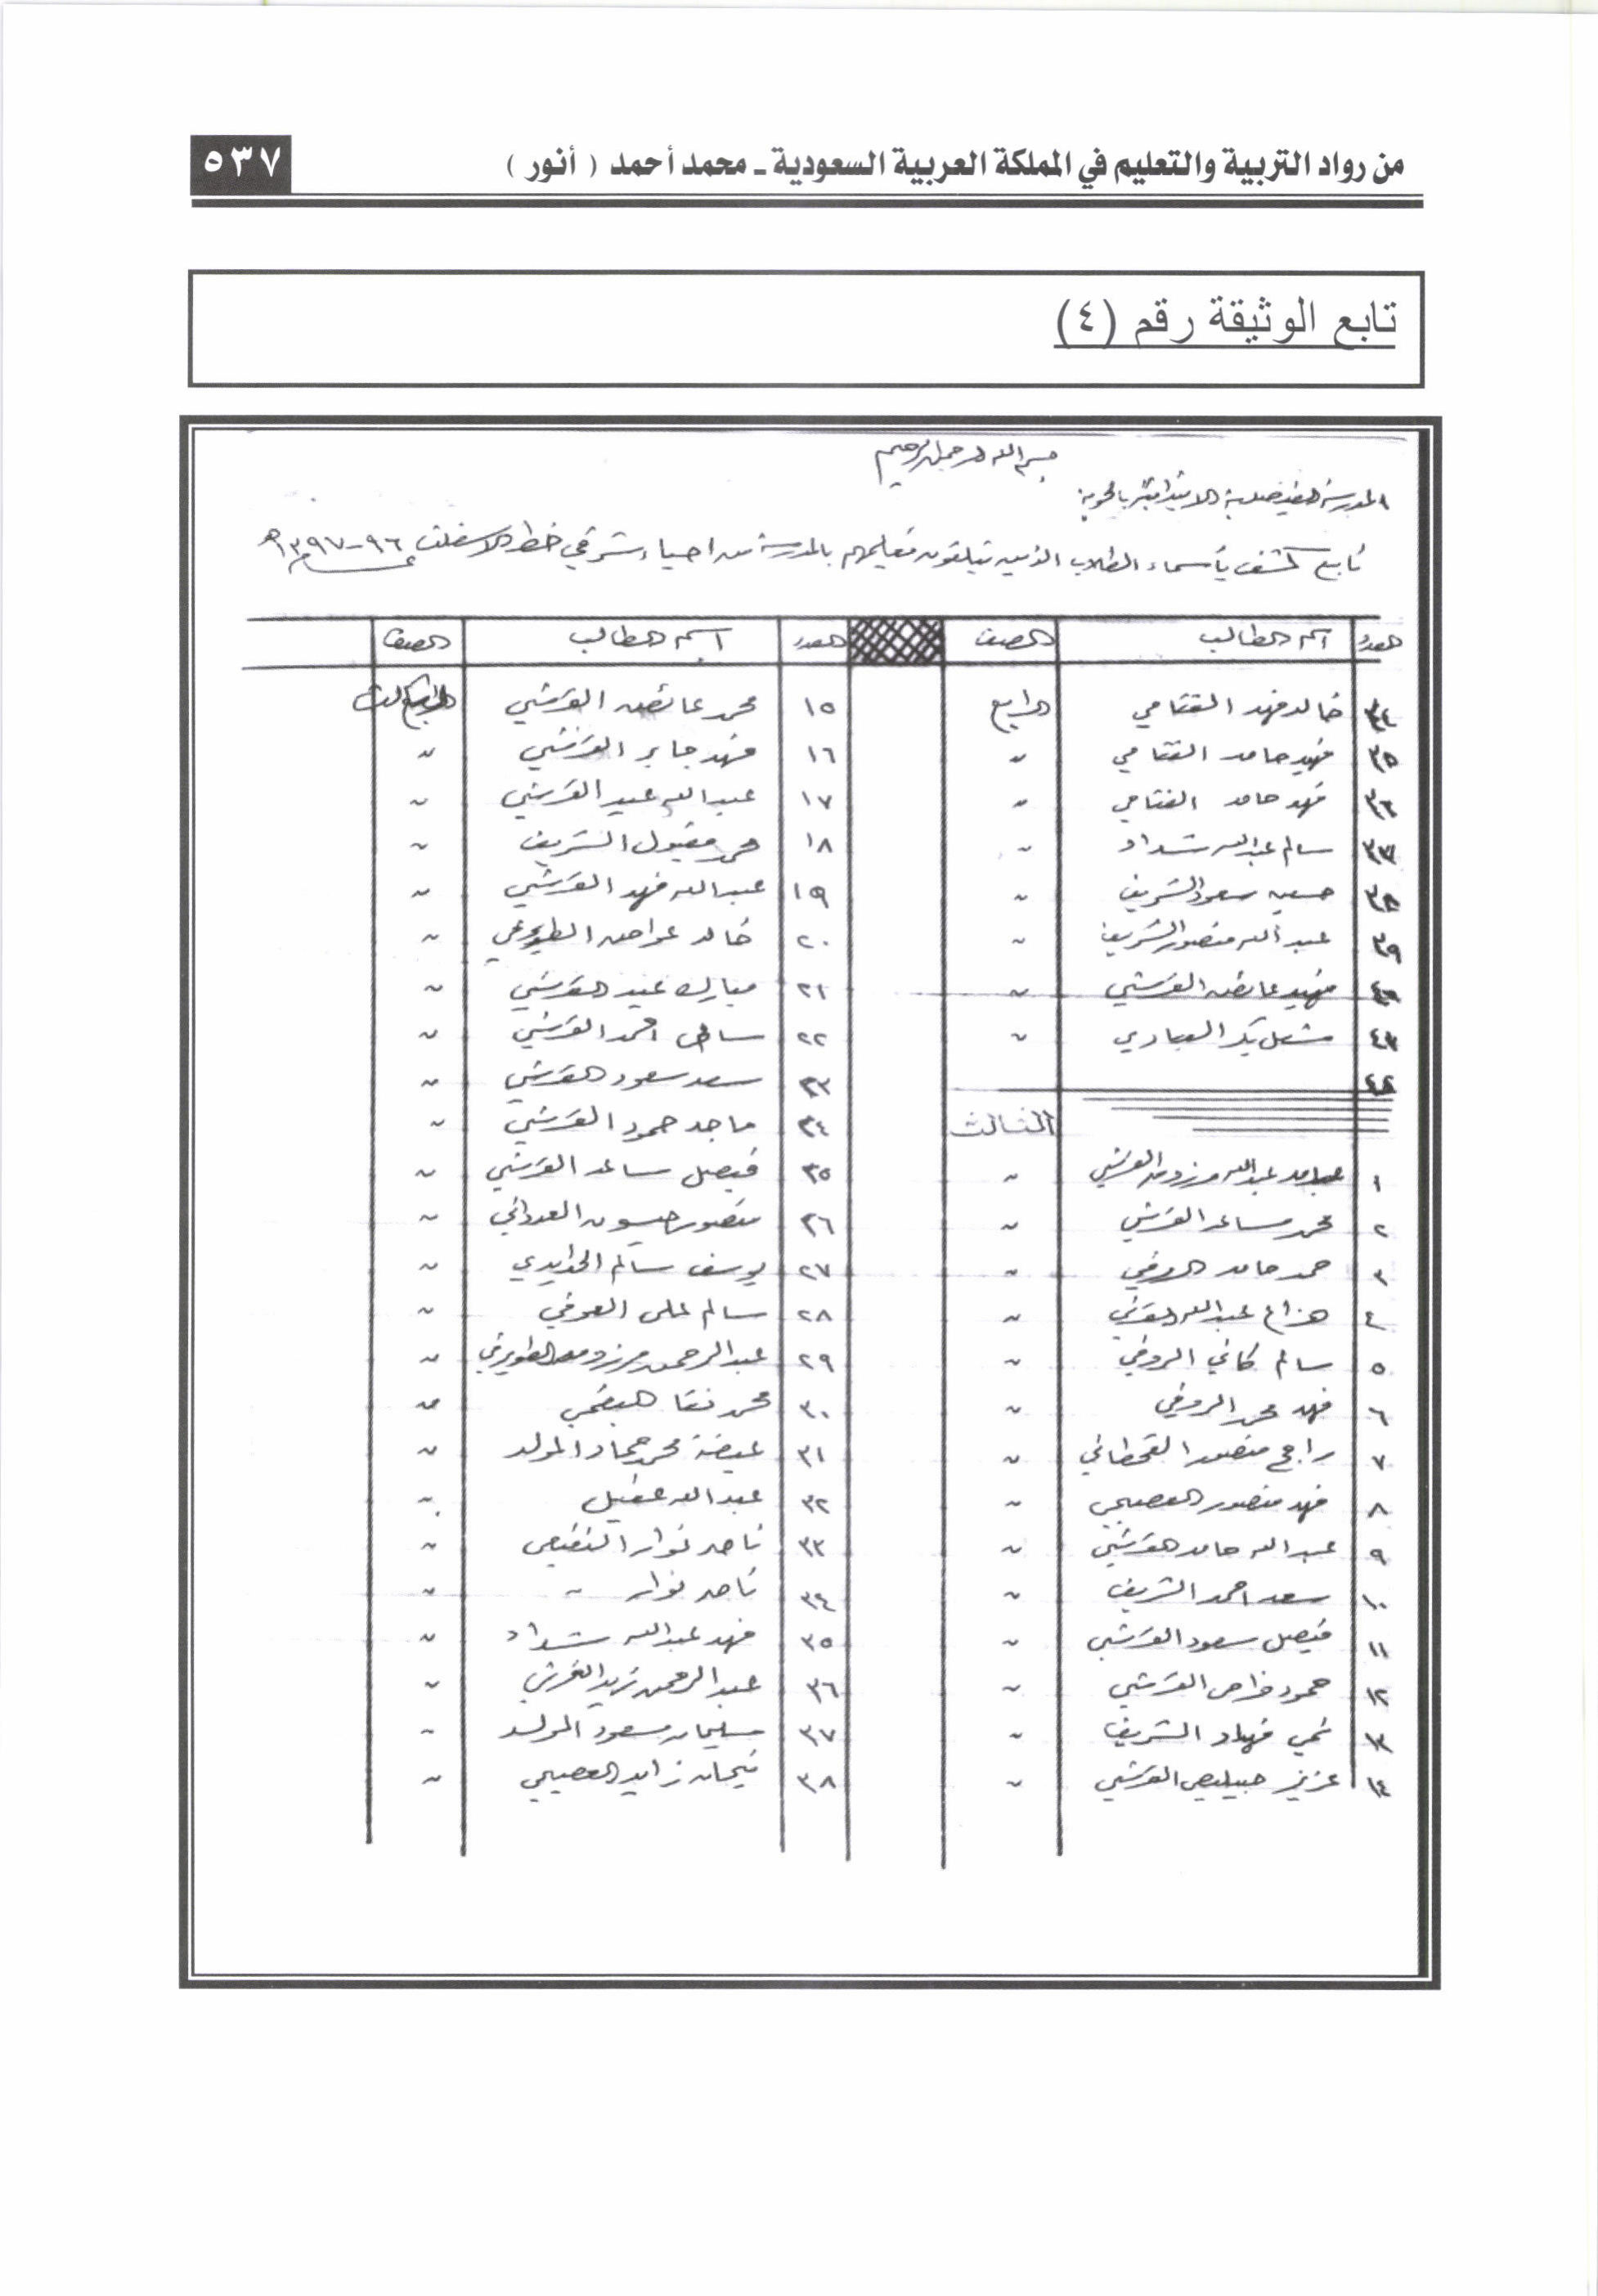 من رواد التربية والتعليم في المملكة العربية السعودية ـ محمد أحمد ( أنور ) ٥٣٧
تابع الوثيقة رقم (٤)
بسم الله الرحمن الرحيم
المدرسة الفيصلية الابتدائية بالحوية
تابع كشف بأسماء الطلاب الذين يتلقون تعليمهم بالمدرسة من احياء شرقي خط الاسفلت ٩٦-١٣٩٧هـ
العدد اسم الطالب الصف العدد اسم الطالب الصف
٣٤ خالد فهد القثامي الرابع ١٥ محمد عائض القرشي الثالث
٣٥ فهيد حامد القثامي " ١٦ فهد جابر القرشي "
٣٦ فهد حامد القثامي " ١٧ عبدالله عبيد القرشي "
٣٧ سالم عبدالله شداد " ١٨ محمد مقبول الشريف "
٣٨ حسين سعود الشريف " ١٩ عبدالله فهد القرشي "
٣٩ عبدالله منصور الشريف " ٢٠ خالد عواض "
٤٠ فهيد عايض القرشي " ٢١ مبارك عيد القرشي "
٤١ مشعل بكر العبادي " ٢٢ سامي احمد القرشي "
٤٢ ٢٣ سعد سعود القرشي "
الثالث ٢٤ ماجد حمود القرشي "
١ عبدالله مرزوق القرشي " ٢٥ فيصل ساعد القرشي "
٢ محمد مساعد القرشي " ٢٦ منصور العدواني "
٣ حمد حامد الروقي " ٢٧ يوسف سالم "
٤ هزاع عبدالله القرشي " ٢٨ سالم علي العوفي "
٥ سالم الروقي " ٢٩ عبدالرحمن مرزوق الطويرقي "
٦ فهد محمد الروقي " ٣٠ محمد "
٧ راجح منصور القحطاني " ٣١ عيضة محمد حماد المولد "
٨ فهد منصور العصيمي " ٣٢ عبدالله عقيل "
٩ عبدالله حامد القرشي " ٣٣ ناصر نوار النفيعي "
١٠ سعد احمد الشريف " ٣٤ ناصر نوار " "
١١ فيصل سعود القرشي " ٣٥ فهد عبدالله شداد "
١٢ حمود القرشي " ٣٦ عبدالرحمن "
١٣ الشريف " ٣٧ سليمان مسعود المولد "
١٤ عزيز القرشي " ٣٨ زايد العصيمي "